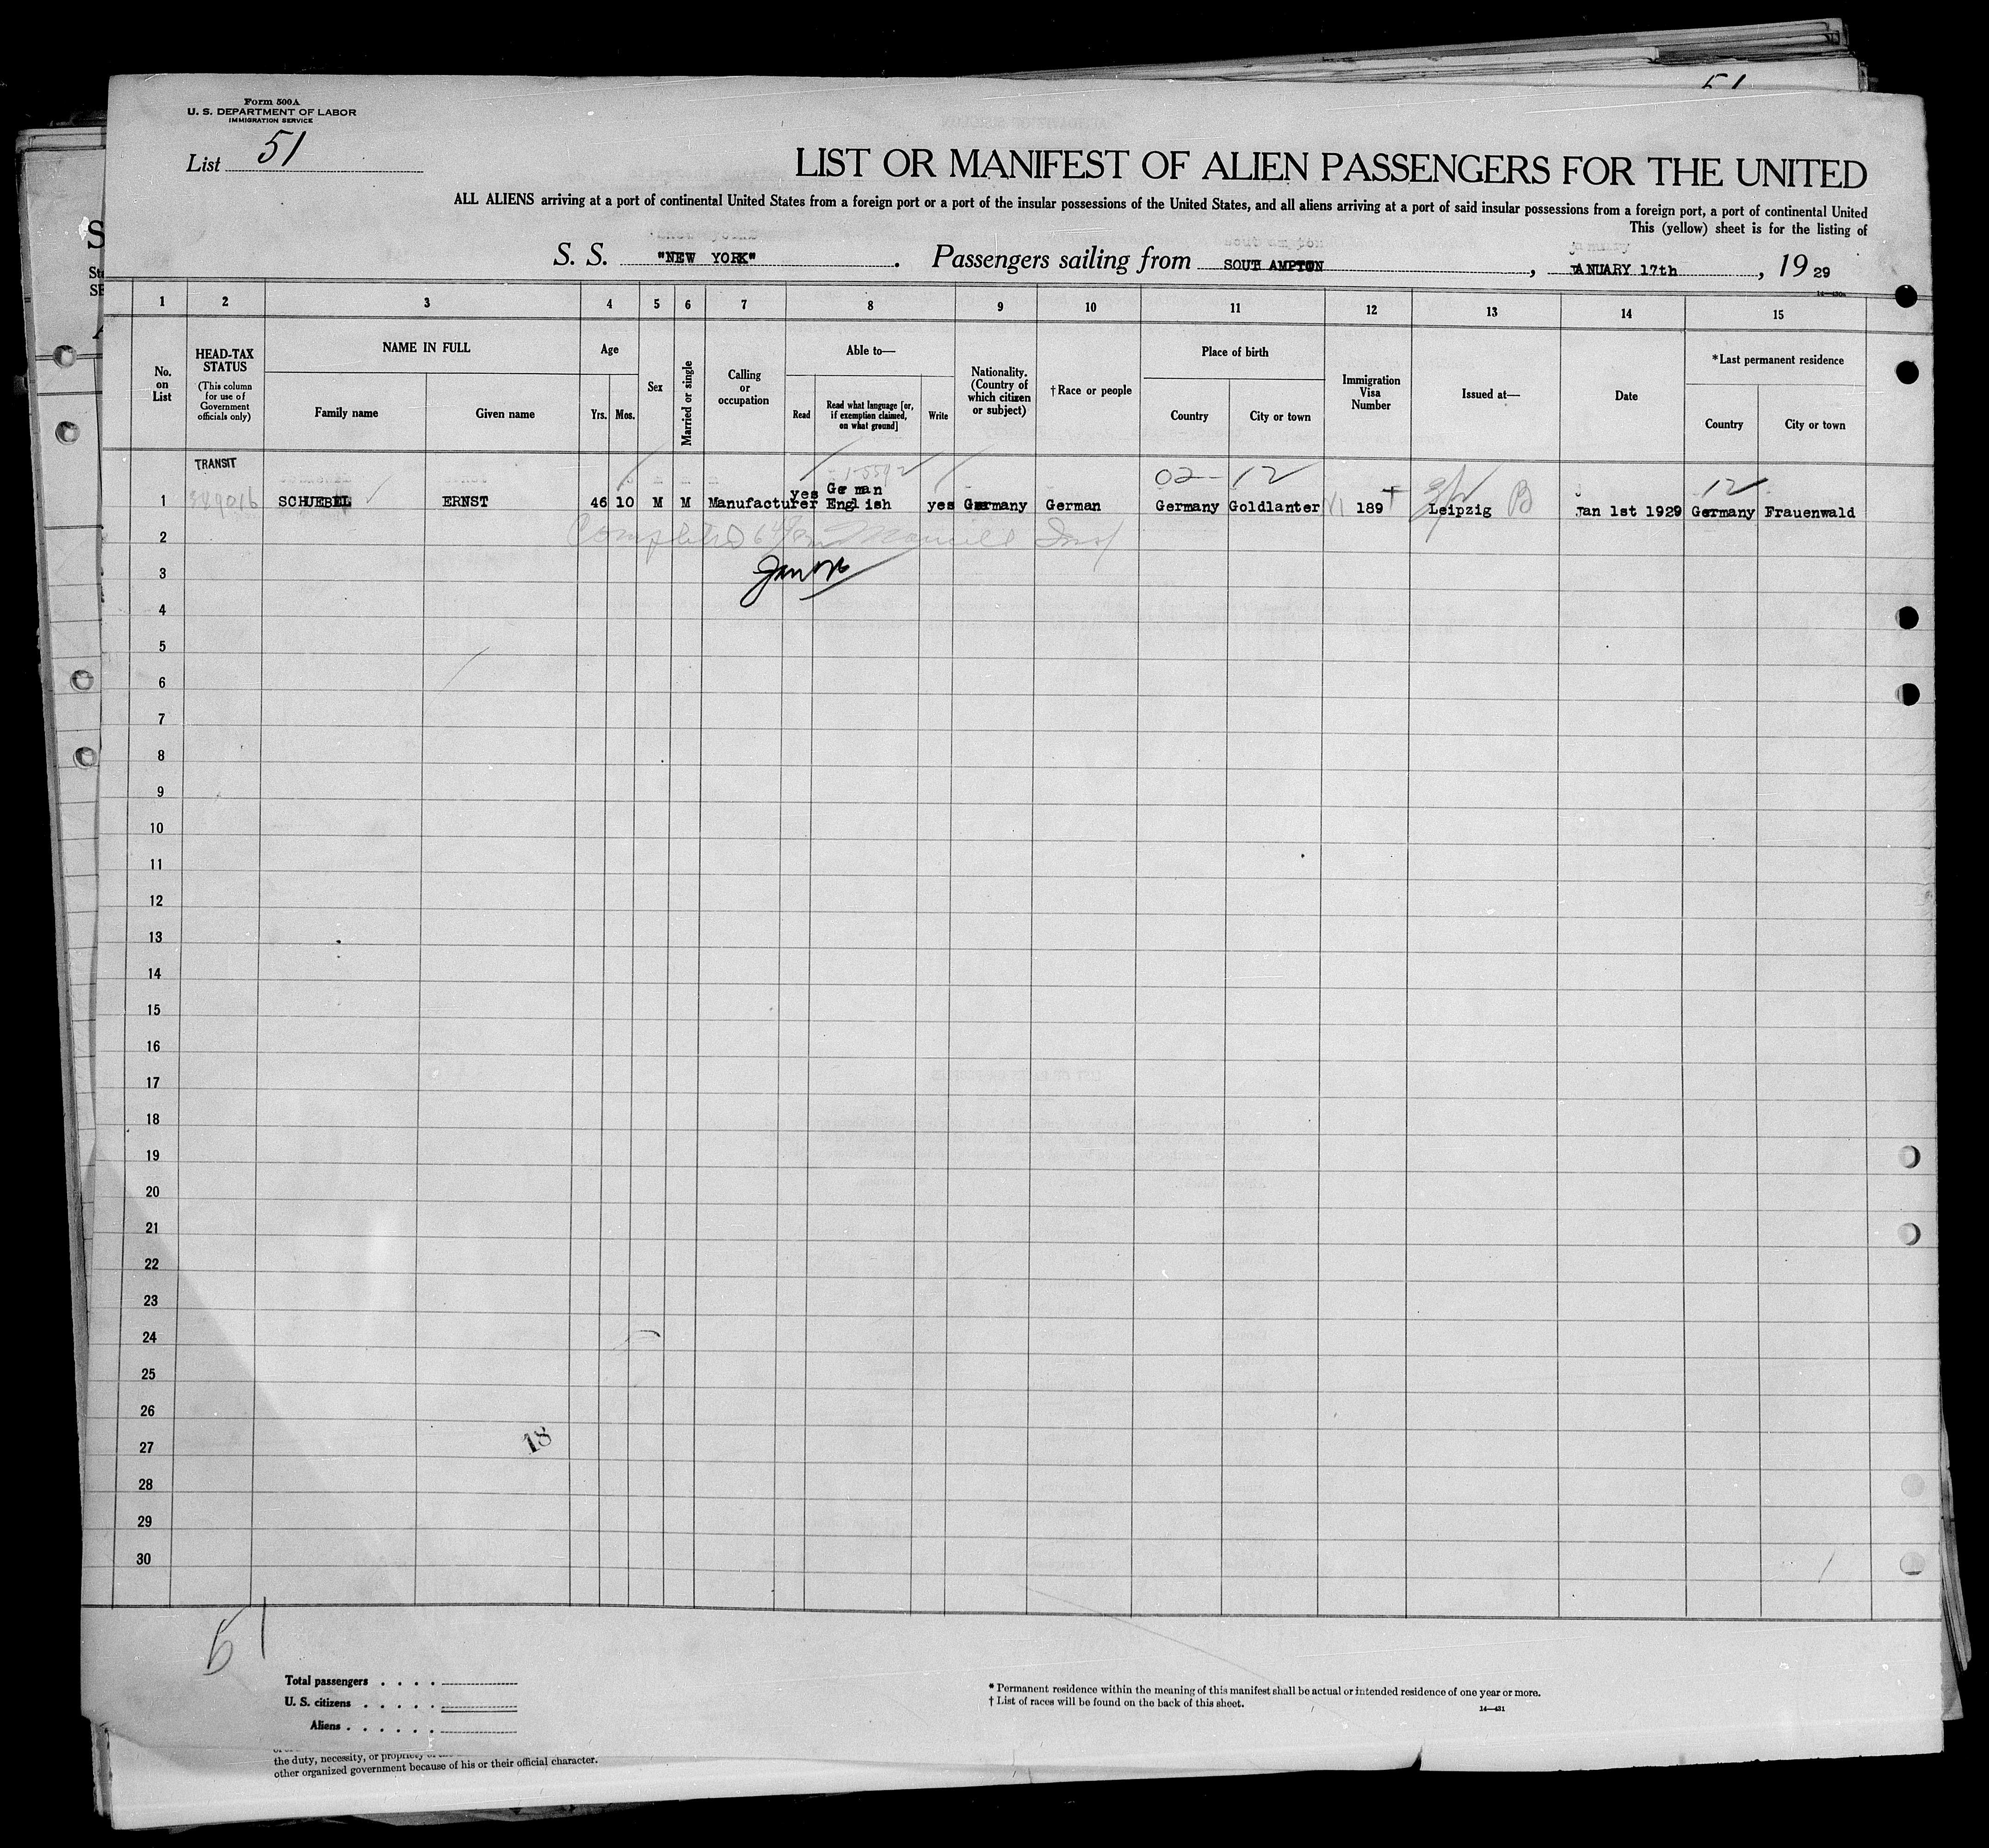 51
Form 500A
U. S. DEPARTMENT OF LABOR
IMMIGRATION SERVICE
List 51
LIST OR MANIFEST OF ALIEN PASSENGERS FOR THE UNITED
ALL ALIENS arriving at a port of continental United States from a foreign port or a port of the insular possessions of the United States, and all aliens arriving at a port of said insular possessions from a foreign port, a port of continental United
This (yellow) sheet is for the listing of
S. S. "NEW YORK". Passengers sailing from SOUTHAMPTON, JANUARY 17th, 19 29
1 2 3 4 5 6 7 8 9 10 11 12 13 14 15
No. on List
HEAD-TAX STATUS (This column for use of Government officials only)
NAME IN FULL
Family name Given name
Age
Yrs. Mos.
Sex
Married or single
Calling or occupation
Able to—
Read
Read what language [or, if exemption claimed, on what ground]
Write
Nationality. (Country of which citizen or subject)
†Race or people
Place of birth
Country City or town
Immigration Visa Number
Issued at—
Date
*Last permanent residence
Country City or town
TRANSIT
02- 12 12
1 SCHUEBEL ERNST 46 10 M M Manufacturer yes German English yes Germany German Germany Goldlanter 189 Leipzig B Jan 1st 1929 Germany Frauenwald
2
3
4
5
6
7
8
9
10
11
12
13
14
15
16
17
18
19
20
21
22
23
24
25
26
27
18
28
29
30
51
Total passengers . . . .
U. S. citizens . . . . .
Aliens . . . . . .
* Permanent residence within the meaning of this manifest shall be actual or intended residence of one year or more.
† List of races will be found on the back of this sheet.
14—431
the duty, necessity, or propriety of
other organized government because of his or their official character.